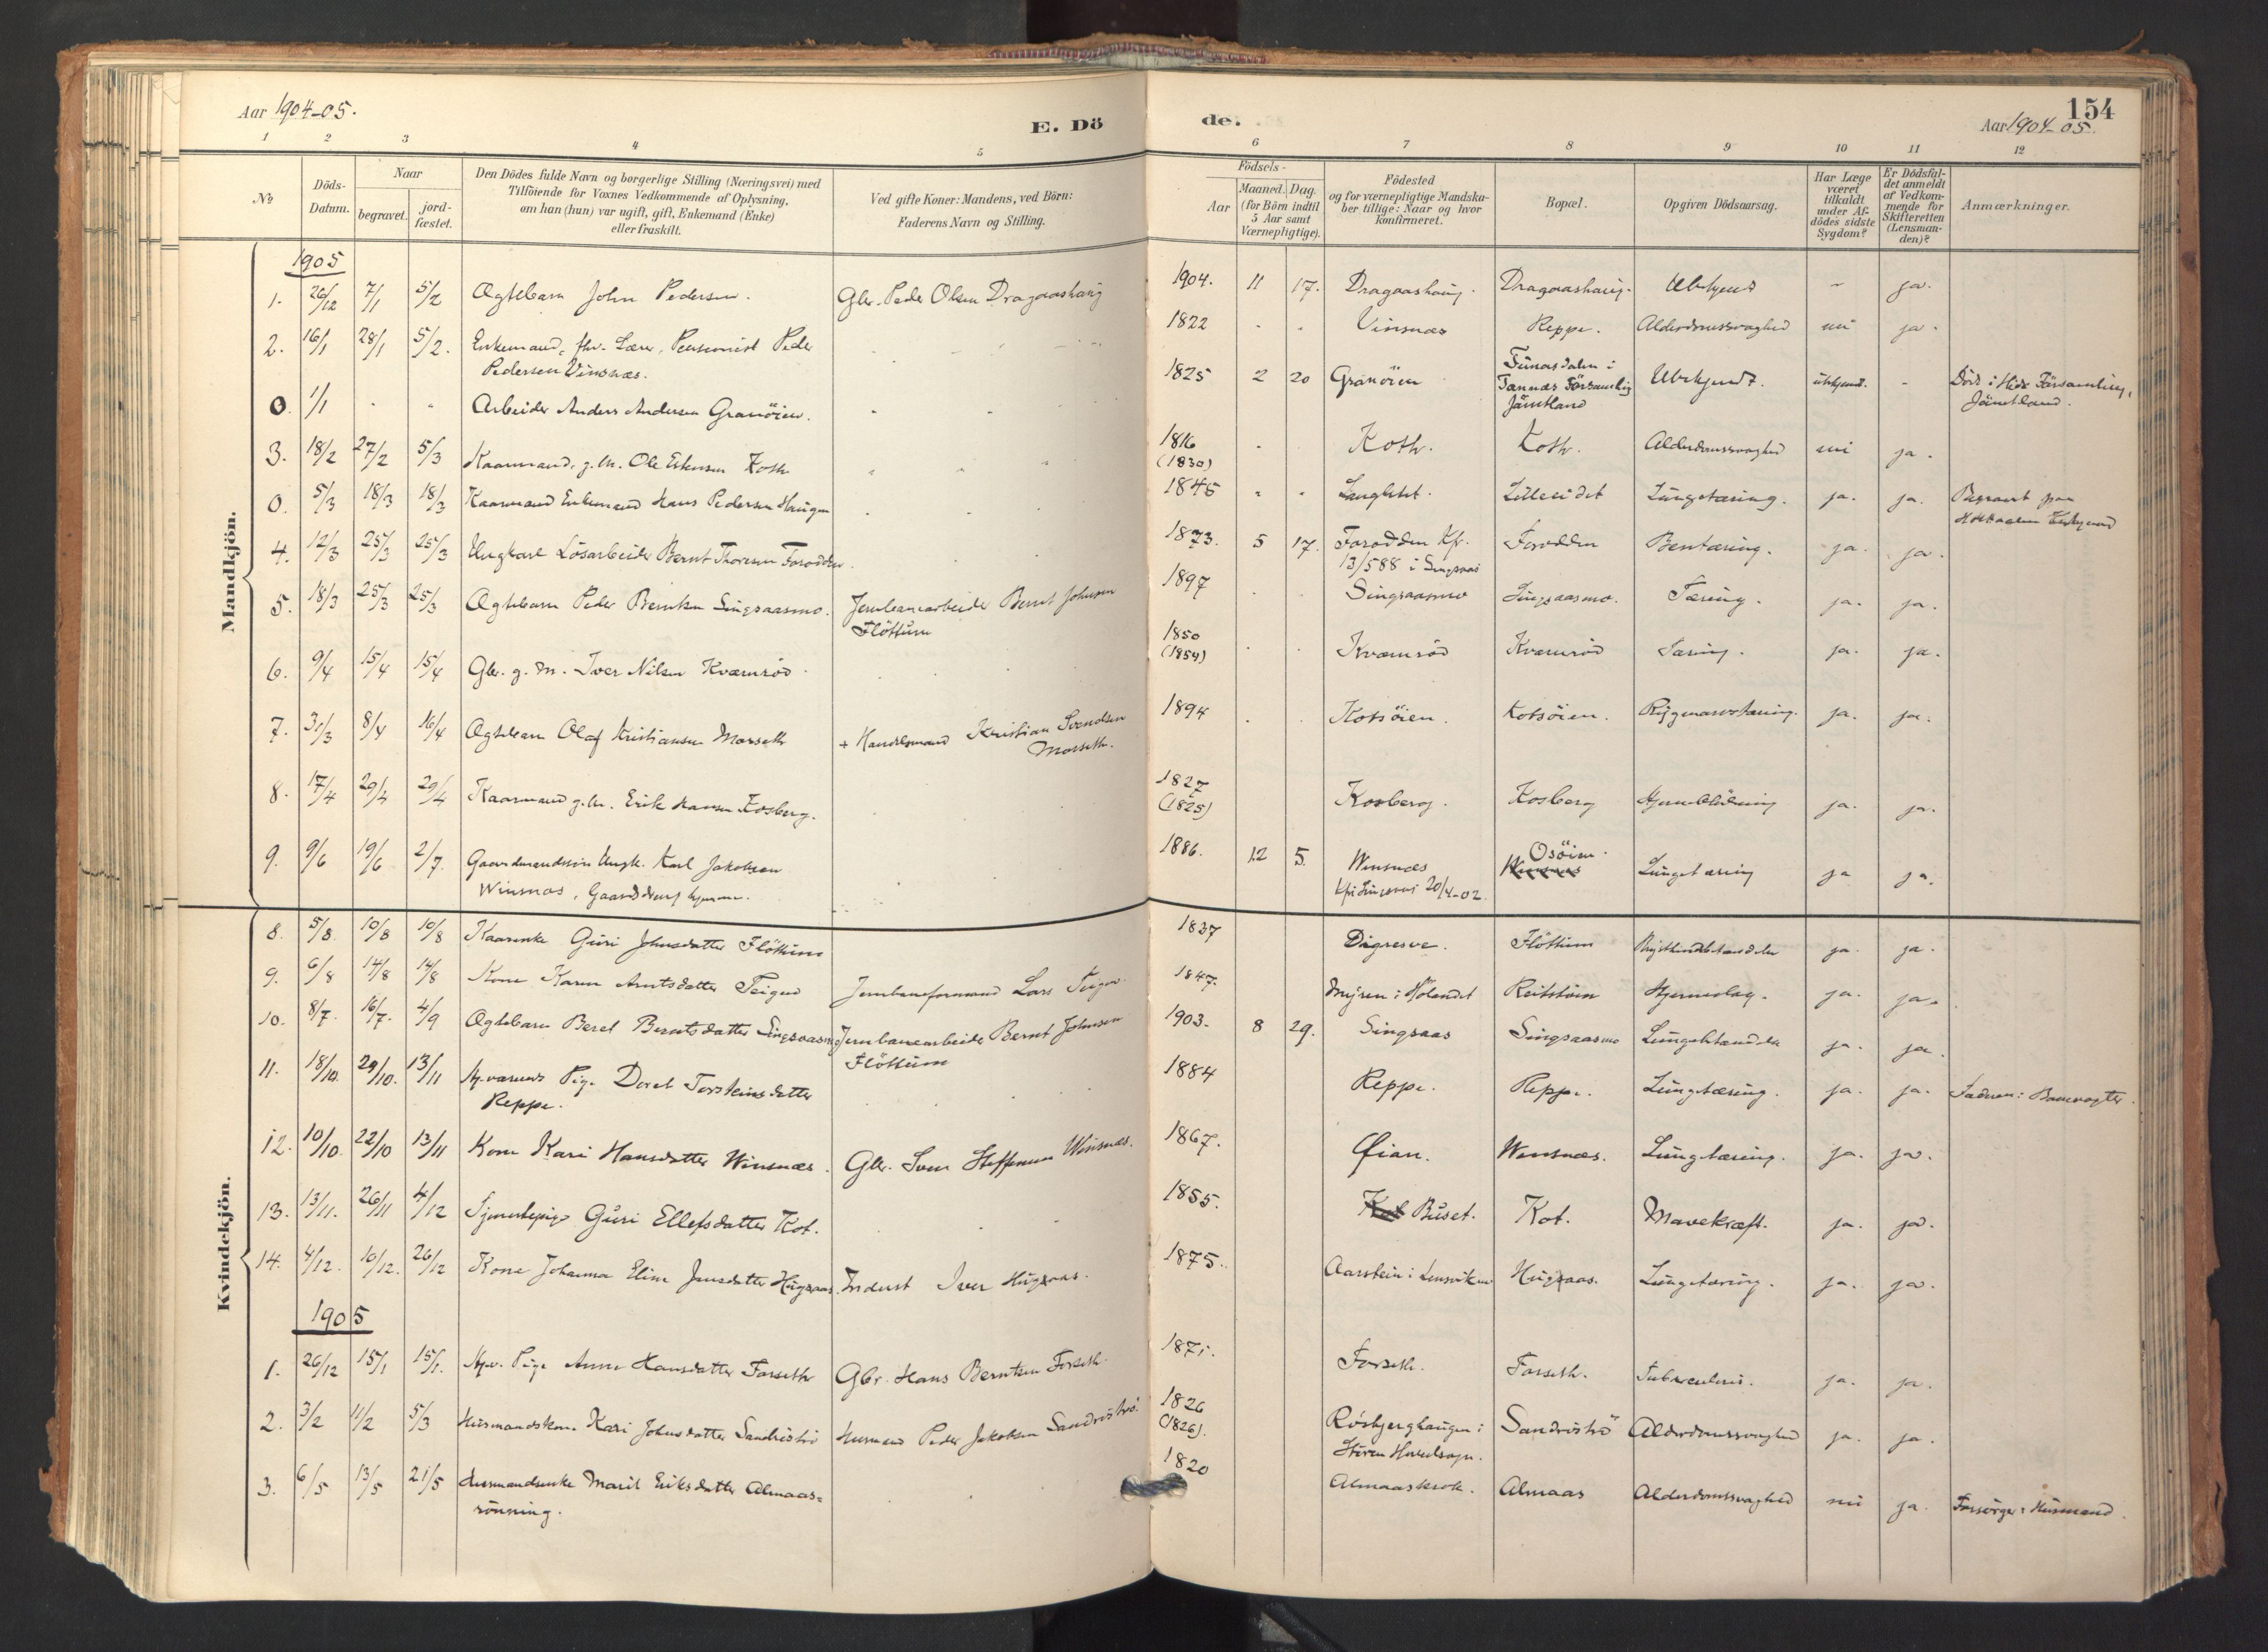 Aar 1904-05.
E. Dö
de.
154
Aar 1904-05.
1 2 3 4 5 6 7 8 9 10 11 12
No
Döds-
Datum.
Naar
begravet.
jord-
fæstet.
Den Dödes fulde Navn og borgerlige Stilling (Næringsvei) med
Tilföiende for Voxnes Vedkommende af Oplysning,
om han (hun) var ugift, gift, Enkemand (Enke)
eller fraskilt.
Ved gifte Koner: Mandens, ved Börn:
Faderens Navn og Stilling.
Födsels-
Aar
Maaned. Dag.
(for Börn indtil
5 Aar samt
Værnepligtige).
Födested
og for værnepligtige Mandska-
ber tillige: Naar og hvor
konfirmeret.
Bopæl.
Opgiven Dödsaarsag.
Har Læge
været
tilkaldt
under Af-
dödes sidste
Sygdom?
Er Dödsfal-
det anmeldt
af Vedkom-
mende for
Skifteretten
(Lensman-
den)?
Anmærkninger.
Mandkjön.
1905
1. 26/12 7/1 5/2 Ægtebarn John Pedersen. Gbr. Peder Olsen Dragaashaug 1904. 11 17. Dragaashaug. Dragaashaug. Ubekjendt - ja.
2. 16/1 28/1 5/2. Enkemand, fhv. Lærer, Pensionist Peder
Pedersen Vinsnæs. 1822 Vinsnæs Reppe. Alderdomssvaghed nei ja.
0. 1/1 Arbeider Anders Andersen Granöien. 1825 2 20 Granöien Funasdalen i
Tannäs Församling
Jämtland Ubekjendt. ubekjendt. - Död i Hede Församling,
Jämtland.
3. 18/2 27/2 5/3 Kaarmand, g. M. Ole Estensen Koth 1816
(1830) Koth. Koth. Alderdomssvaghed nei ja.
0. 5/3 18/3 18/3 Kaarmand Enkemand Hans Pedersen Haugen 1845 Langletet. Lilleeidet Lungetæring. ja. ja. Begravet paa
4. 12/3 25/3 25/3 Ungkarl Lösarbeider Bernt Thoresen Forodden. 1873. 5 17. Forodden Kfr.
13/5 88 i Singsaas Forodden Bentæring. ja. ja.
5. 18/3 25/3 25/3 Ægtebarn Peder Berntsen Singsaasmo. Jernbanearbeider Bernt Johnsen
Flöttum 1897 Singsaasmo Singsaasmo. Tæring. ja. ja.
6. 9/4 15/4 15/4 Gbr. g. M. Iver Nilsen Kværnröd. 1850
(1854) Kværnröd Kværnröd Tæring. ja. ja.
7. 31/3 8/4 16/4 Ægtebarn Olaf Kristiansen Morseth + Handelsmand Kristian Svendsen
Morseth. 1894 Kotsöien. Kotsöien. Rygmarvstæring. ja. ja.
8. 17/4 29/4 29/4 Kaarmand g. M. Erik Hansen Kosberg. 1827
(1825) Kosberg. Kosberg Hjerneblödning ja. ja.
9. 9/6 19/6 2/7. Gaardmandssön Ungk. Karl Jakobsen
Winsnæs, Gaardsdreng hjemme. 1886. 12 5. Winsnæs
Kfr. i Singsaas 20/4-02. Osöien.
Lungetæring ja ja.
Kvindekjön.
8. 5/8. 10/8 10/8 Kaarenke Guri Johnsdatter Flöttum 1837 Digresve. Flöttum Brysthindebetændelse ja. ja.
9. 6/8 14/8 14/8 Kone Karen Arntsdatter Teigen Jernbaneformand Lars Teigen. 1847. Myren i Hölandet Reitstöen Hjerneslag. ja. ja.
10. 8/7. 16/7. 4/9 Ægtebarn Beret Berntsdatter Singsaasmo Jernbanearbeider Bernt Johnsen
Flöttum 1903. 8 29. Singsaas Singsaasmo Lungebetændelse ja. ja.
11. 18/10. 29/10. 13/11 Hj.værende Pige Doret Torsteinsdatter
Reppe. 1884 Reppe. Reppe. Lungetæring. ja. ja. Faderen: Banevogter.
12. 10/10. 22/10 13/11 Kone Kari Hansdatter Winsnæs. Gbr. Svend Steffensen Winsnæs. 1867. Øian. Winsnæs. Lungetæring. ja. ja.
13. 13/11. 26/11 4/12 Tjenestepige Guri Ellefsdatter Kot. 1855. Kot Buset. Kot. Mavekræft. ja. ja.
14. 4/12. 10/12. 26/12 Kone Johanna Elise Jensdatter Hugaas. Inderst Iver Hugaas. 1875. Aarstein i Lensviken Hugaas. Lungetæring. ja. ja.
1905
1. 26/12 15/1 15/1. Hjv. Pige Anne Hansdatter Forseth Gbr. Hans Berntsen Forseth. 1871. Forseth. Forseth. Tuberculosis. ja. ja.
2. 3/2 11/2 5/3 Husmandskone Kari Johnsdatter Sandröströ Husmand Peder Jakobsen Sandröströ. 1826
(1826). Rösbjerghaugen i
Stören Hovedsogn. Sandröströ Alderdomssvaghed ja. ja.
3. 6/5 13/5 21/5 Husmandsenke Marit Eriksdatter Almaas=
rönning. 1820 Almaaskrok. Almaas Alderdomssvaghed nei ja. Forsörger: Husmand.